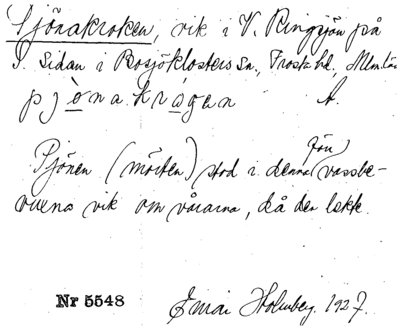 Pjönakroken, vik i V. Ringsjön på
S. Sidan i Bosjöklosters sn., Frosta hd, Mlm. län
pjönakrågen A.
Pjönen (mörten) stod i denna förr vassbe-
vuxna vik om vårarna, då den lekte.
Nr 5548
Emar Holmberg. 1927.